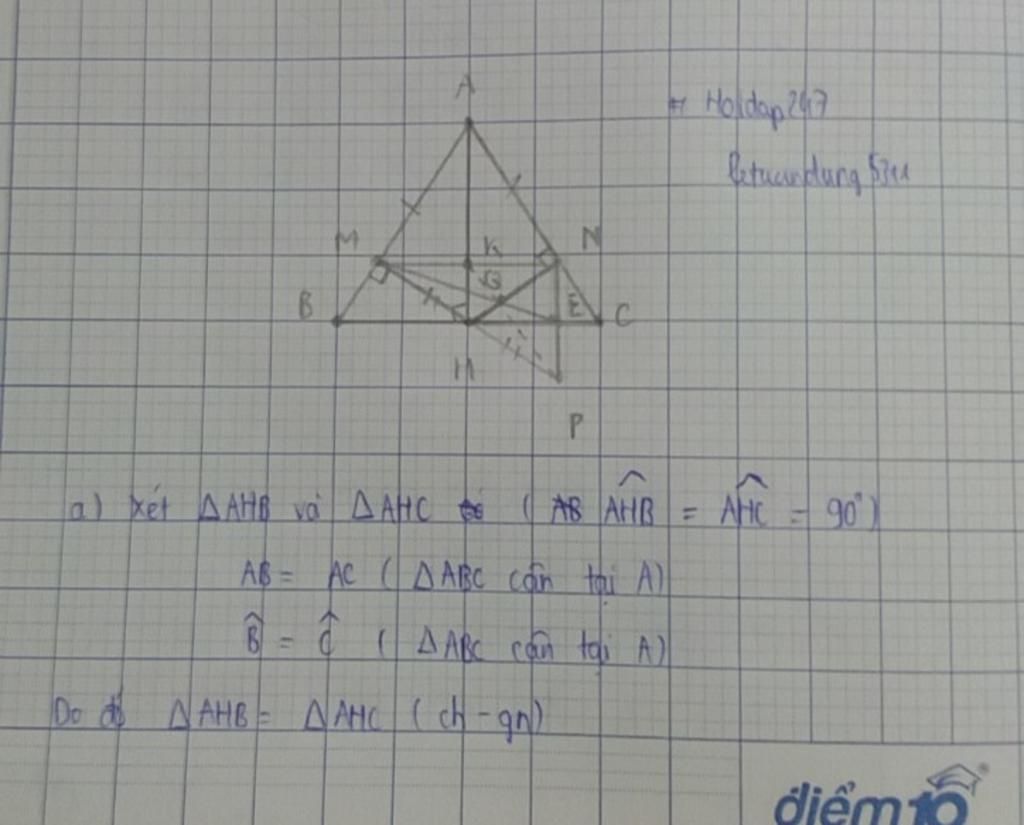 A
Hoidap247
letuandung5311
M
K
N
B
E
C
H
P
a) Xét ΔAHB và ΔAHC có ( AB AHB = AHC = 90°)
AB = AC ( ΔABC cân tại A)
B̂ = Ĉ ( ΔABC cân tại A)
Do đó ΔAHB = ΔAHC ( ch - gn)
điểm10